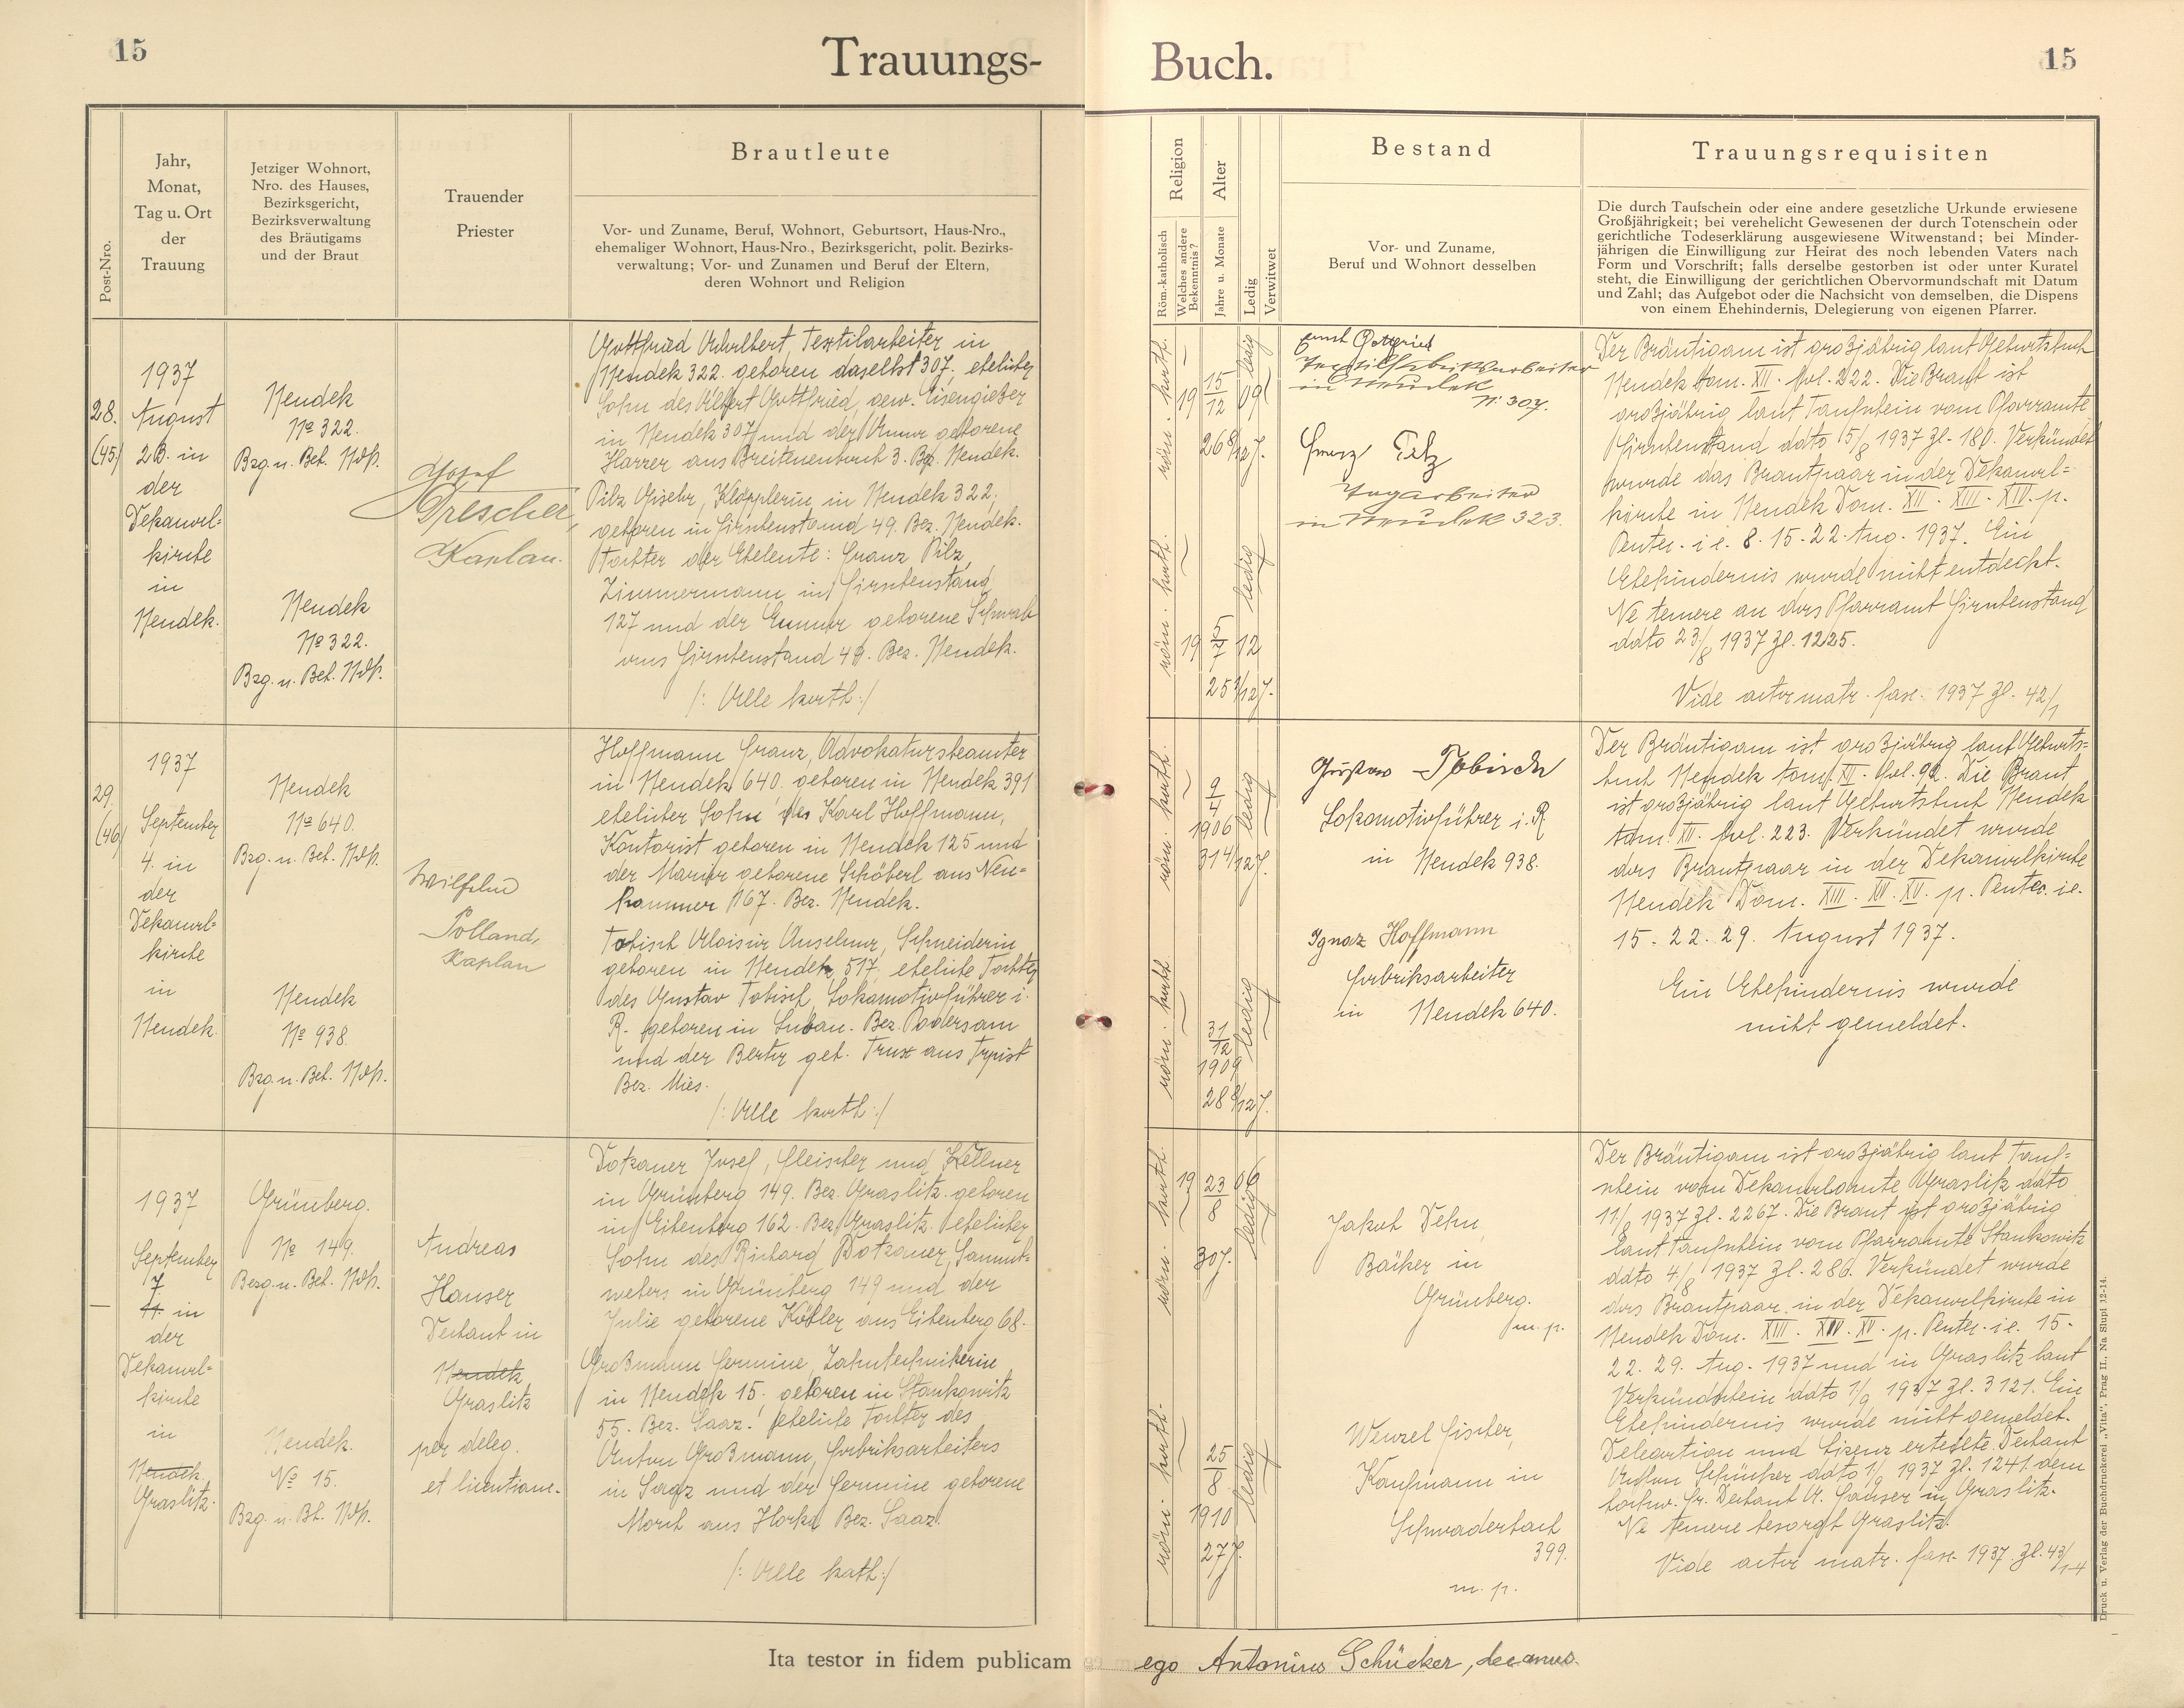 15
Trauungs-
Buch.
15
Post-Nro.
Jahr,
Monat,
Tag u. Ort
der
Trauung
Jetziger Wohnort,
Nro. des Hauses,
Bezirksgericht,
Bezirksverwaltung
des Bräutigams
und der Braut
Trauender
Priester
Brautleute
Vor- und Zuname, Beruf, Wohnort, Geburtsort, Haus-Nro.,
ehemaliger Wohnort, Haus-Nro., Bezirksgericht, polit. Bezirks-
verwaltung; Vor- und Zunamen und Beruf der Eltern,
deren Wohnort und Religion
Religion
Röm.-katholisch
Welches andere
Bekenntnis?
Alter
Jahre u. Monate
Ledig
Verwitwet
Bestand
Vor- und Zuname,
Beruf und Wohnort desselben
Trauungsrequisiten
Die durch Taufschein oder eine andere gesetzliche Urkunde erwiesene
Großjährigkeit; bei verehelicht Gewesenen der durch Totenschein oder
gerichtliche Todeserklärung ausgewiesene Witwenstand; bei Minder-
jährigen die Einwilligung zur Heirat des noch lebenden Vaters nach
Form und Vorschrift; falls derselbe gestorben ist oder unter Kuratel
steht, die Einwilligung der gerichtlichen Obervormundschaft mit Datum
und Zahl; das Aufgebot oder die Nachsicht von demselben, die Dispens
von einem Ehehindernis, Delegierung von eigenen Pfarrer.
28.
(45)
1937
August
28. in
der
Dekanal-
kirche
in
Neudek.
Neudek
No 322.
Bzg. u. Beh. Ndk.
Neudek
No 322.
Bzg. u. Beh. Ndk.
Josef
Drescher,
Kaplan.
Gottfried Adalbert Textilarbeiter in
Neudek 322. geboren daselbst 307, ehelicher
Sohn des Albert Gottfried, gew. Eisengießer
in Neudek 307 und der Anna geborene
Harzer aus Breitenbach 3. Bz. Neudek.
Pilz Gisela, Klöpplerin in Neudek 322,
geboren in Hirschenstand 49. Bez. Neudek.
Tochter der Eheleute: Franz Pilz,
Zimmermann in Hirschenstand
127 und der Emma geborene Schwab
aus Hirschenstand 49. Bez. Neudek.
/: Alle kath:/
röm. kath.
19 15/12 09
26 8/12 J.
ledig
röm. kath.
19 5/7 12
25 1/12 J.
ledig
Gottfried
in Neudek
N: 307.
Franz Pilz
in Neudek 323.
Der Bräutigam ist großjährig laut Geburtsbuch
Neudek tom. XII. fol. 222. Die Braut ist
großjährig laut Taufschein vom Pfarramte
Hirschenstand ddto 15/8 1937 Zl. 180. Verkündet
wurde das Brautpaar in der Dekanal-
kirche in Neudek Dom. XII. XIII. XIV. p.
Pentec. i.e. 8. 15. 22. Aug. 1937. Ein
Ehehindernis wurde nicht entdeckt.
Ne temere an das Pfarramt Hirschenstand
ddto 23/8 1937 Zl. 1225.
Vide acta matr. fasc. 1937 Zl. 42/1
29.
(46)
1937
September
4. in
der
Dekanal-
kirche
in
Neudek
Neudek
No 640.
Bzg. u. Beh. Ndk.
Neudek
No 938.
Bzg. u. Beh. Ndk.
Wilhelm
Polland,
Kaplan
Hoffmann Franz, Advokatursbeamter
in Neudek 640. geboren in Neudek 391
ehelicher Sohn des Karl Hoffmann,
Kontorist geboren in Neudek 125 und
der Maria geborene Schöberl aus Neu-
hammer 167. Bez. Neudek.
Tobisch Aloisia Anselma, Schneiderin
geboren in Neudek 517, eheliche Tochter
des Gustav Tobisch, Lokomotivführer i.
R. geboren in Luban. Bez. Podersam
und der Berta geb. Trux aus Trpist
Bez. Mies.
/: Alle kath:/
röm. kath.
9/4
1906
31 4/12 J.
ledig
röm. kath.
31/12
1909
28 8/12 J.
ledig
Gustav Tobisch
Lokomotivführer i. R
in Neudek 938.
Ignaz Hoffmann
Fabriksarbeiter
in Neudek 640.
Der Bräutigam ist großjährig laut Geburts-
buch Neudek tom. XII. fol. 92. Die Braut
ist großjährig laut Geburtsbuch Neudek
tom. XII. fol. 223. Verkündet wurde
das Brautpaar in der Dekanalkirche
Neudek Dom. XIII. XIV. XV. p. Pentec. i.e.
15. 22. 29. August 1937.
Ein Ehehindernis wurde
nicht gemeldet.
—
1937
September
7
11. in
der
Dekanal-
kirche
in
Neudek
Graslitz.
Grünberg.
No 149.
Bezg. u. Beh. Ndk.
Neudek.
No 15.
Bzg. u. Bh. Ndk.
Andreas
Hauser
Dechant in
Neudek
Graslitz
per deleg.
et licentiam.
Dotzauer Josef, Fleischer und Kellner
in Grünberg 149. Bez. Graslitz. geboren
in Eibenberg 162. Bez. Graslitz. ehelicher
Sohn des Richard Dotzauer, Sammt-
webers in Grünberg 149 und der
Julie geborene Köhler aus Eibenberg 68.
Großmann Hermine, Zahntechnikerin
in Neudek 15. geboren in Stankowitz
55. Bez. Saaz. eheliche Tochter des
Anton Großmann, Fabriksarbeiters
in Saaz und der Hermine geborene
Morch aus Horka Bez. Saaz.
/: Alle kath:/
röm. kath.
19 23/8 06
30 J.
ledig
röm. kath.
25/8
1910
27 J.
ledig
Jakob Dehn,
Bäcker in
Grünberg.
m. p.
Wenzel Fischer,
Kaufmann in
Schwaderbach
399.
m. p.
Der Bräutigam ist großjährig laut Tauf-
schein vom Dekanalamte Graslitz ddto
11/8 1937 Zl. 2267. Die Braut ist großjährig
laut Taufschein vom Pfarramte Stankowitz
ddto 4/8 1937 Zl. 286. Verkündet wurde
das Brautpaar in der Dekanalkirche in
Neudek Dom. XIII. XIV. XV. p. Pentec. i.e. 15.
22. 29. Aug. 1937 und in Graslitz laut
Verkündschein ddto 1/9 1937 Zl. 3121. Ein
Ehehindernis wurde nicht gemeldet.
Delegation und Lizenz erteilte Dechant
Anton Schücker ddto 1/9 1937 Zl. 1241 dem
hochw. Hr. Dechant A. Hauser in Graslitz.
Ne temere besorgt Graslitz.
Vide acta matr. fasc. 1937. Zl. 43/1-4
Druck u. Verlag der Buchdruckerei „Vita", Prag II., Na Slupi 12-14.
Ita testor in fidem publicam
ego Antonius Schücker, decanus.